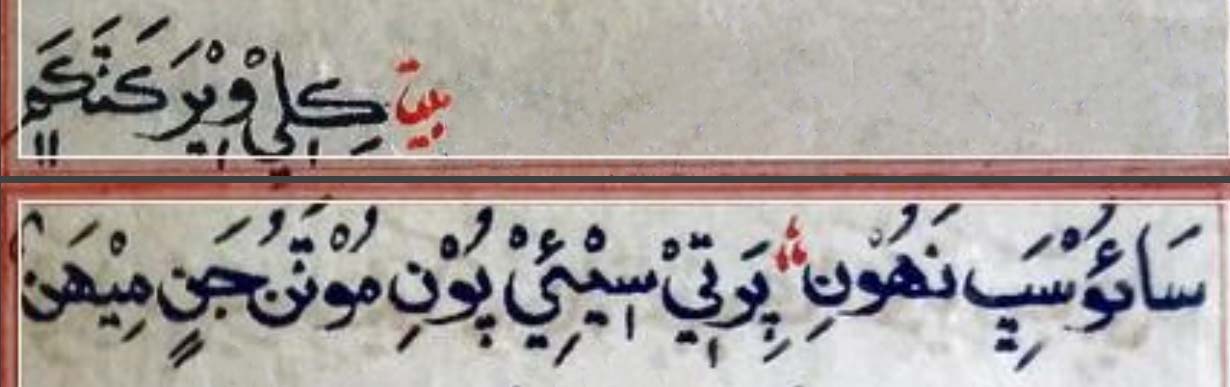 بيت كِلِيْ وِيْرَ كَنَكَمِ
سَائُوْ سَپِ نَهُوْنِ پَرَتِيْ سِيْئِيْ پُوْنِ مُوْتَنُ جَنِ مِيْهَن